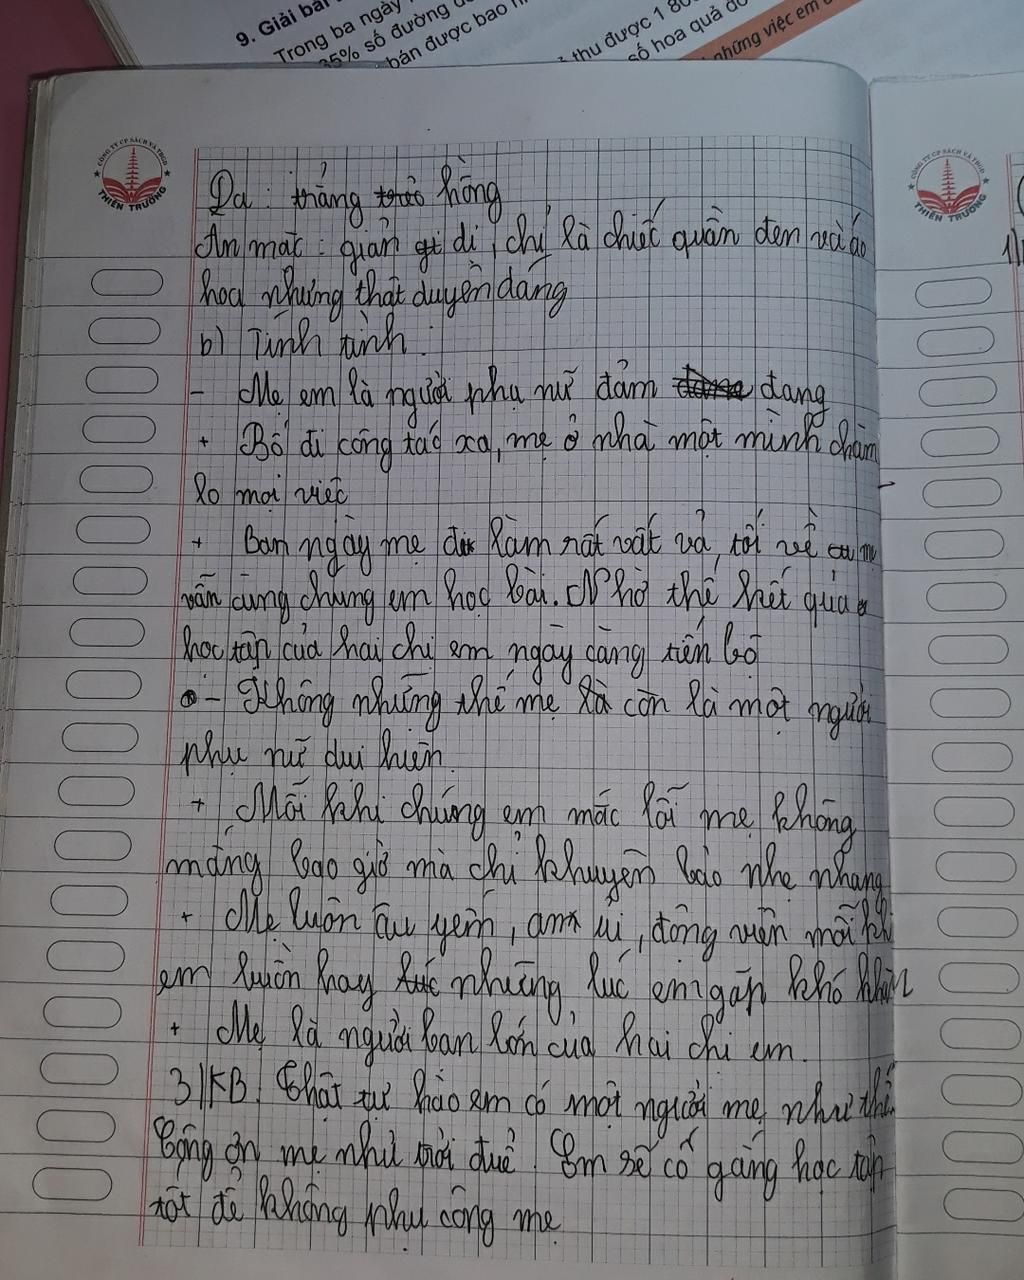 9. Giải bài
Trong ba ngày
35% số đường
bán được bao
thu được 1 80
số hoa quả đó
những việc em
CÔNG TY CP SÁCH VÀ TBGD
THIÊN TRƯỜNG
CÔNG TY CP SÁCH VÀ TBGD
THIÊN TRƯỜNG
Da: trảng hồng
Ăn mặc: giản dị, chỉ là chiếc quần đen và áo
hoa nhưng thật duyên dáng
b) Tính tình:
- Mẹ em là người phụ nữ đảm đang
+ Bố đi công tác xa, mẹ ở nhà một mình chăm
lo mọi việc
+ Ban ngày mẹ đi làm rất vất vả, tối về mẹ
vẫn cùng chúng em học bài. Nhờ thế kết quả
học tập của hai chị em ngày càng tiến bộ
- Không những thế mẹ còn là một người
phụ nữ dui hiền.
+ Mỗi khi chúng em mắc lỗi mẹ không
mắng bao giờ mà chỉ khuyên bảo nhẹ nhàng
+ Mẹ luôn âu yếm, an ủi, động viên mỗi khi
em buồn hay những lúc em gặp khó khăn
+ Mẹ là người bạn lớn của hai chị em.
3) KB: Thật tự hào em có một người mẹ như thế.
Công ơn mẹ như trời đuể. Em sẽ cố gắng học tập
tốt để không phụ công mẹ
1)